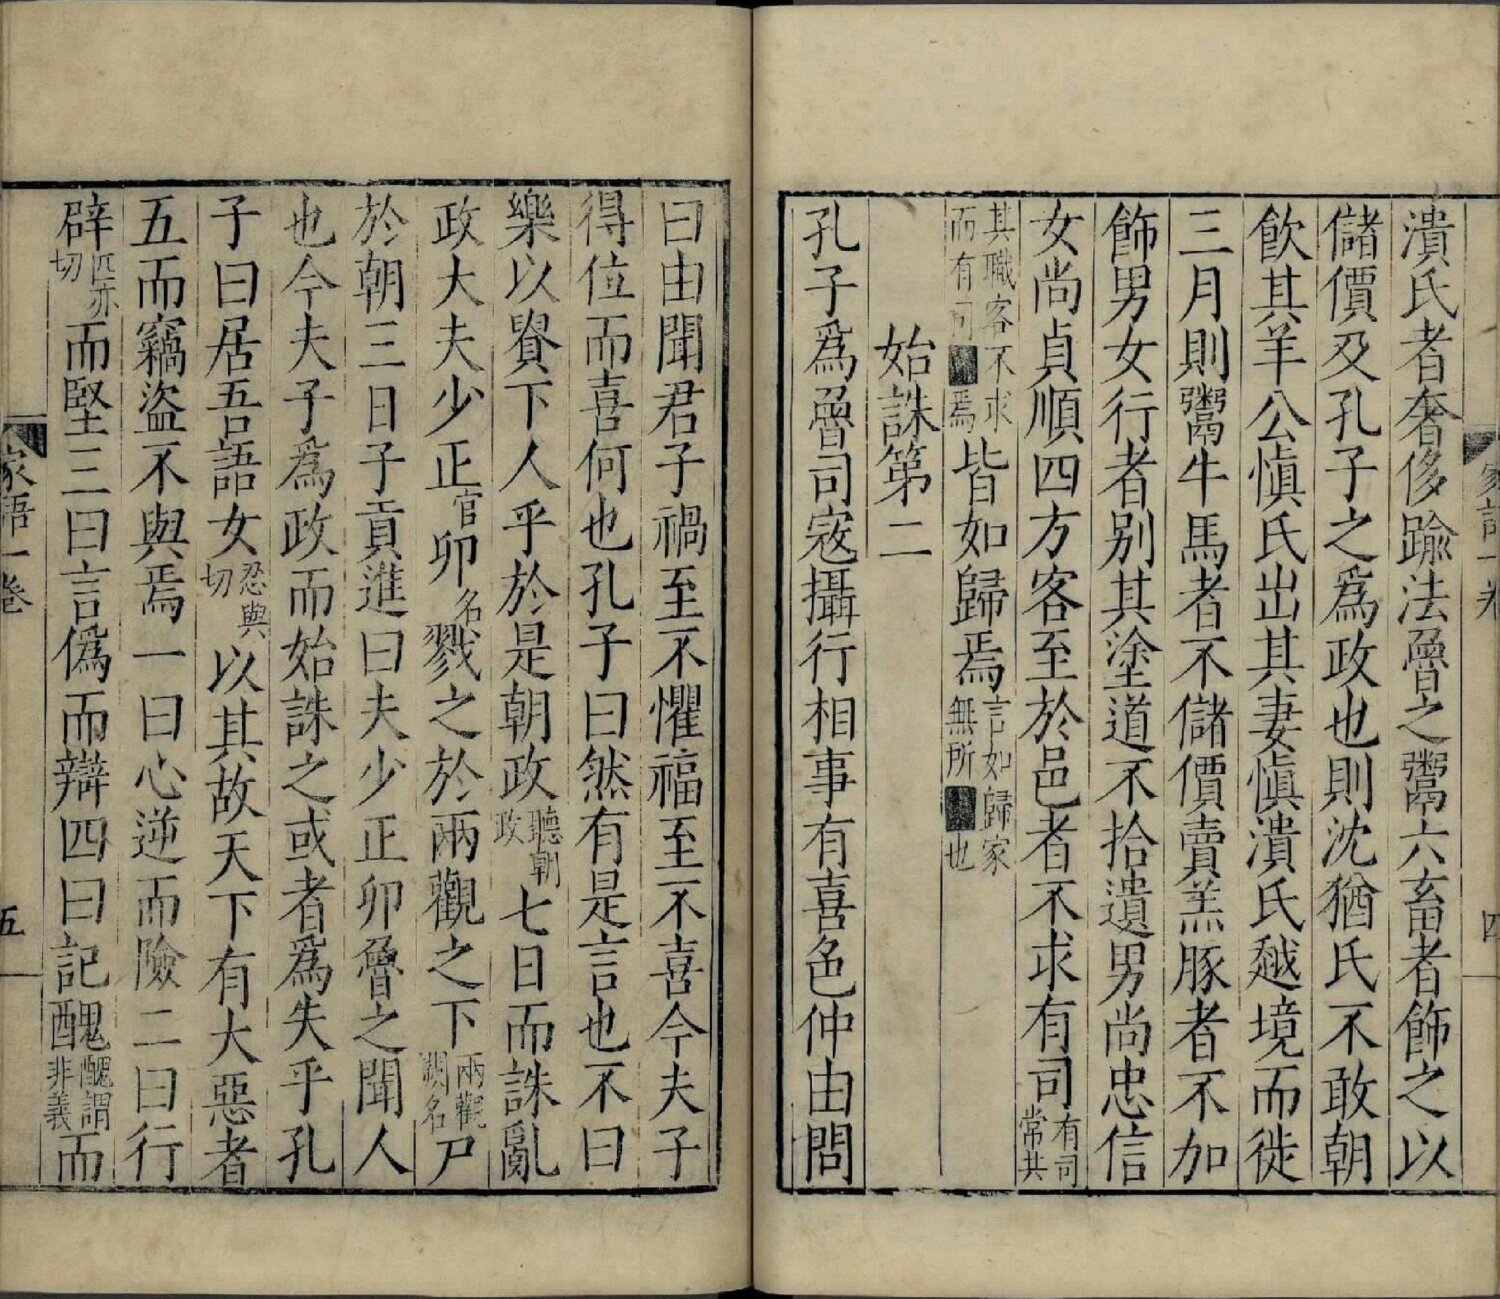 潰氏者奢侈踰法魯之鬻六畜者飾之以
儲價及孔子之爲政也則沈猶氏不敢朝
飲其羊公愼氏出其妻愼潰氏越境而徙
三月則鬻牛馬者不儲價賣羔豚者不加
飾男女行者別其塗道不拾遺男尚忠信
女尚貞順四方客至於邑者不求有司有司常共
其職客不求而有司焉皆如歸焉言如歸家無所也
始誅第二
孔子爲魯司寇攝行相事有喜色仲由問
曰由聞君子禍至不懼福至不喜今夫子
得位而喜何也孔子曰然有是言也不曰
樂以貴下人乎於是朝政聽朝政七日而誅亂
政大夫少正官卯名戮之於兩觀之下兩觀闕名尸
於朝三日子貢進曰夫少正卯魯之聞人
也今夫子爲政而始誅之或者爲失乎孔
子曰居吾語女忍與切以其故天下有大惡者
五而竊盜不與焉一曰心逆而險二曰行
辟匹亦切而堅三曰言僞而辯四曰記醜醜謂非義而
家語一卷
五